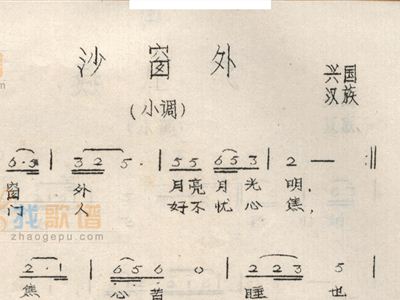 沙窗外
(小调)
兴国
汉族
6·5 | 3 2 5· | 5 5 6 5 3 | 2 — :||
窗 外 月亮月光 明,
门 人 好不忧心 焦,
找歌谱
zhaogepu.com
2·1 | 6 5 6 0 | 2 2 3 5
焦 心苦 睡 也